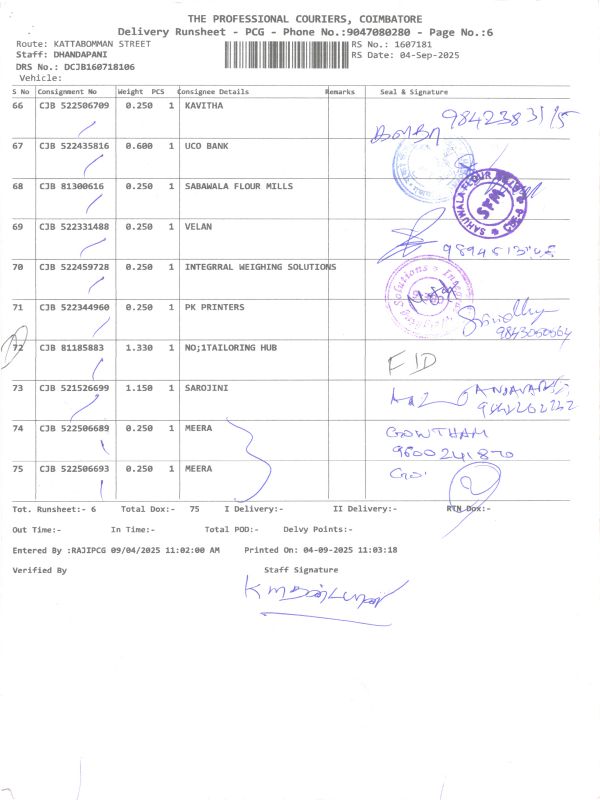 THE PROFESSIONAL COURIERS, COIMBATORE
Delivery Runsheet - PCG - Phone No.:9047080280 - Page No.:6
Route: KATTABOMMAN STREET RS No.: 1607181
Staff: DHANDAPANI RS Date: 04-Sep-2025
DRS No.: DCJB160718106
Vehicle:
S No Consignment No Weight PCS Consignee Details Remarks Seal & Signature
66 CJB 522506709 0.250 1 KAVITHA
67 CJB 522435816 0.600 1 UCO BANK
68 CJB 81300616 0.250 1 SABAWALA FLOUR MILLS
SFM
69 CJB 522331488 0.250 1 VELAN
70 CJB 522459728 0.250 1 INTEGRRAL WEIGHING SOLUTIONS
71 CJB 522344960 0.250 1 PK PRINTERS
9843050564
72 CJB 81185883 1.330 1 NO;1TAILORING HUB
73 CJB 521526699 1.150 1 SAROJINI
74 CJB 522506689 0.250 1 MEERA GOWTHAM
9600241870
75 CJB 522506693 0.250 1 MEERA
Tot. Runsheet:- 6 Total Dox:- 75 I Delivery:- II Delivery:- RTN Dox:-
Out Time:- In Time:- Total POD:- Delvy Points:-
Entered By :RAJIPCG 09/04/2025 11:02:00 AM Printed On: 04-09-2025 11:03:18
Verified By Staff Signature